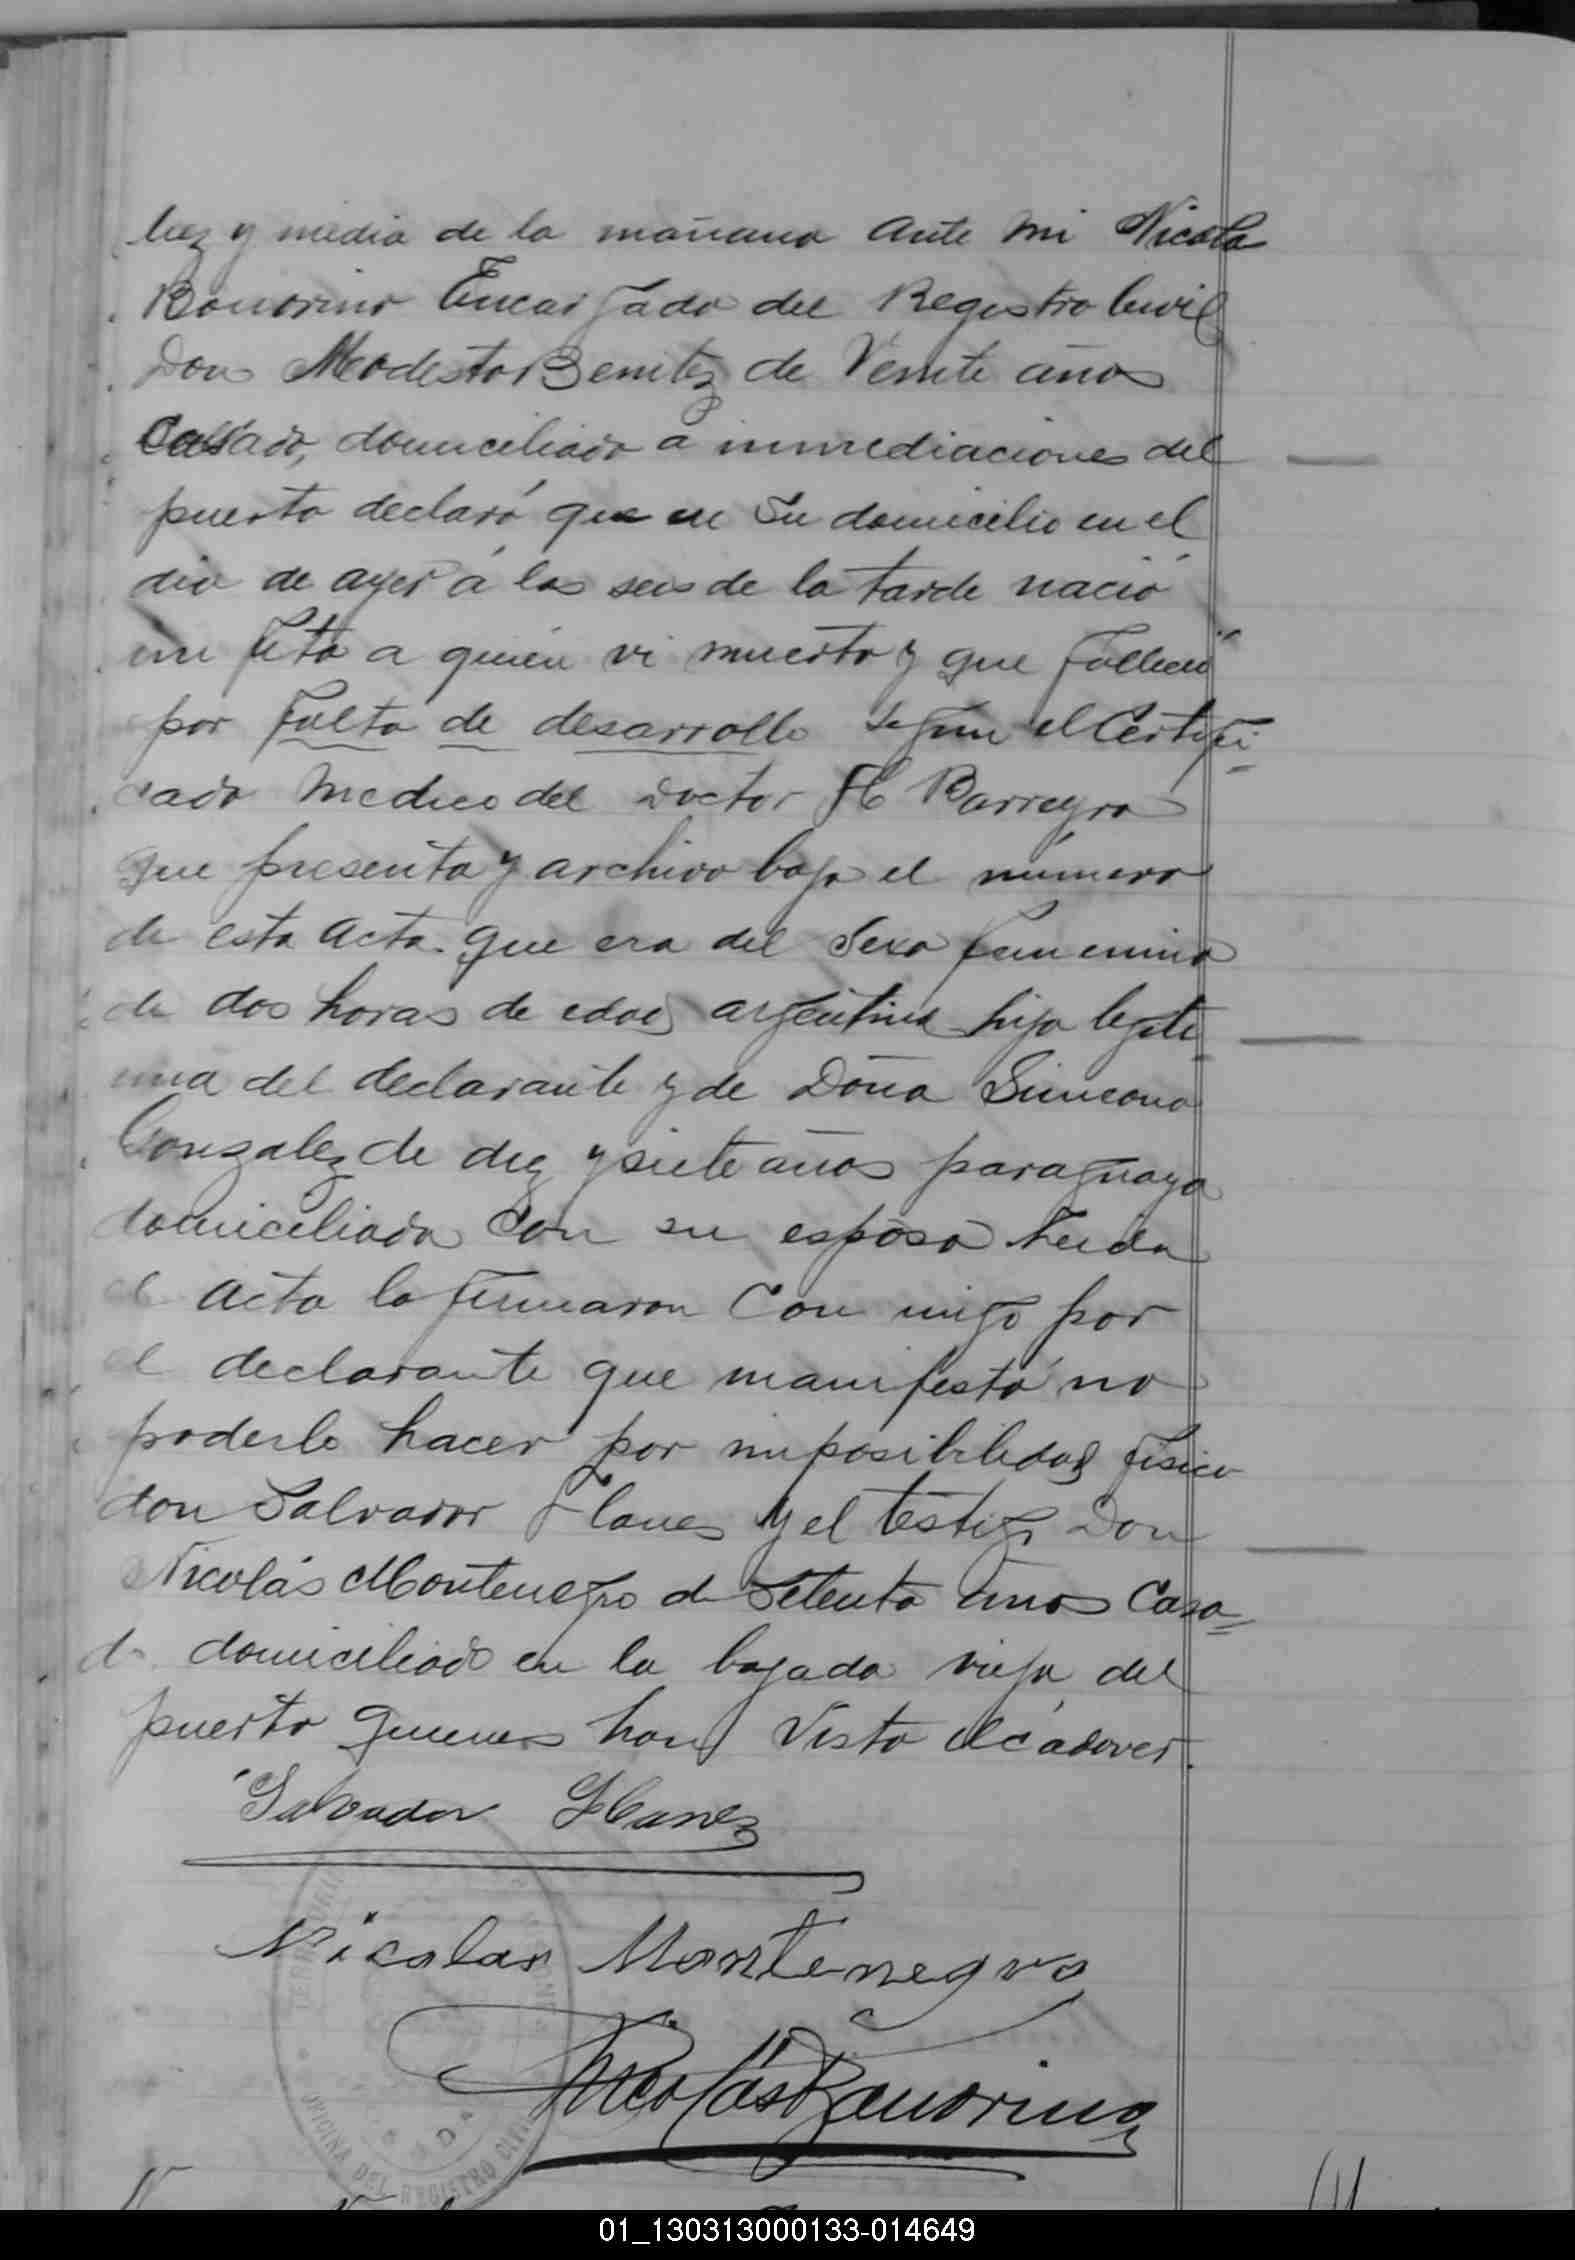 diez y media de la mañana ante mi Nicola
Bonorino Encargado del Registro Civil
Don Modesto Benitez de Veinte años
Casado, domiciliado a inmediaciones del
puerto declaró que en su domicilio en el
dia de ayer á las seis de la tarde nació
un feto a quien vi muerto y que fallecio
por falta de desarrollo segun el Certifi=
cado medico del Doctor H Barreyro
que presenta y archivo bajo el número
de esta acta. que era del Sexo femenino
de dos horas de edad argentina hija legiti
ma del declarante y de Doña Simeona
Gonzalez de diez y siete años paraguaya
domiciliada con su esposo leida
el acta la firmaron Con migo por
el declarante que manifestó no
poderlo hacer por imposibilidad fisica
don Salvador y el testigo Don
Nicolás Montenegro de Setenta años Casa=
do domiciliado en la bajada vieja del
puerto quienes han Visto el cádaver.
Salvador
Nicolas Montenegro
Nicolás Bonorino
OFICINA DEL REGISTRO CIVIL
POSADAS
01_130313000133-014649